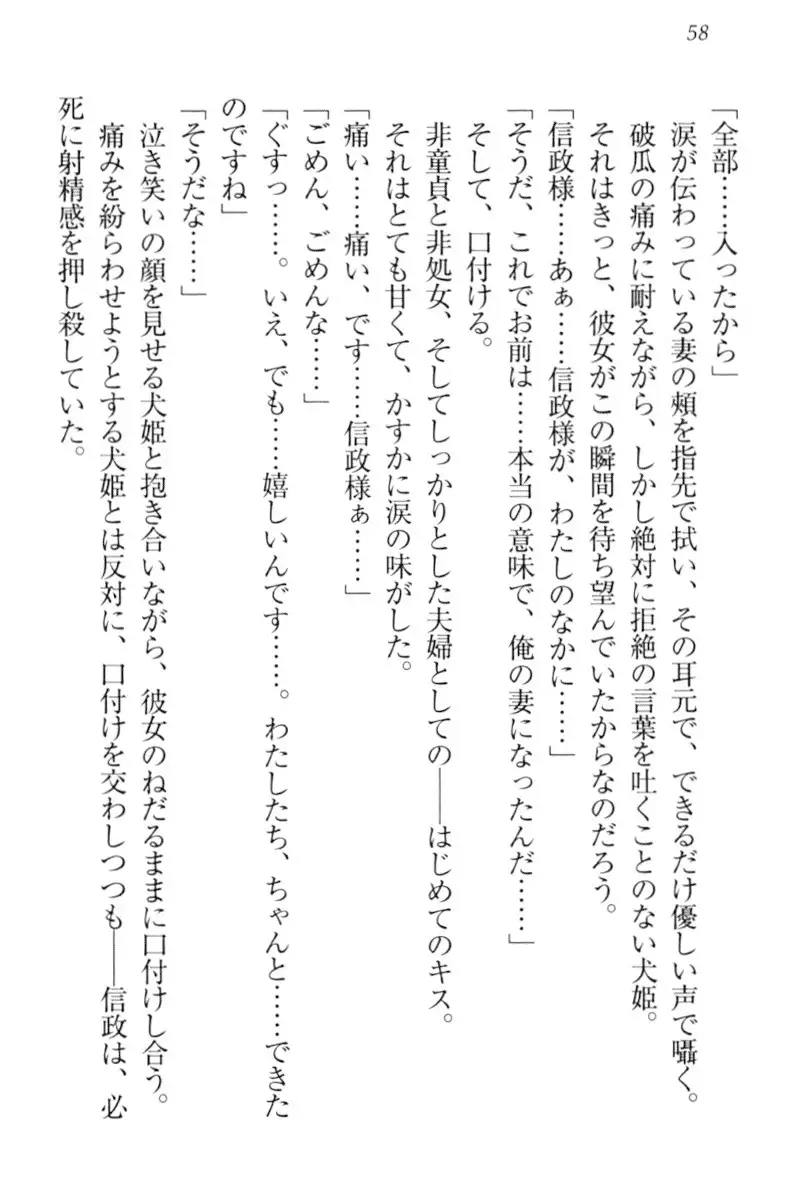 58
「全部……入ったから」
涙が伝わっている妻の頬を指先で拭い、その耳元で、できるだけ優しい声で囁く。
破瓜の痛みに耐えながら、しかし絶対に拒絶の言葉を吐くことのない犬姫。
それはきっと、彼女がこの瞬間を待ち望んでいたからなのだろう。
「信政様……あぁ……信政様が、わたしのなかに……」
「そうだ、これでお前は……本当の意味で、俺の妻になったんだ……」
そして、口付ける。
非童貞と非処女、そしてしっかりとした夫婦としての――はじめてのキス。
それはとても甘くて、かすかに涙の味がした。
「痛い……痛い、です……信政様ぁ……」
「ごめん、ごめんな……」
「ぐすっ……。いえ、でも……嬉しいんです……。わたしたち、ちゃんと……できた
のですね」
「そうだな……」
泣き笑いの顔を見せる犬姫と抱き合いながら、彼女のねだるままに口付けし合う。
痛みを紛らわせようとする犬姫とは反対に、口付けを交わしつつも――信政は、必
死に射精感を押し殺していた。